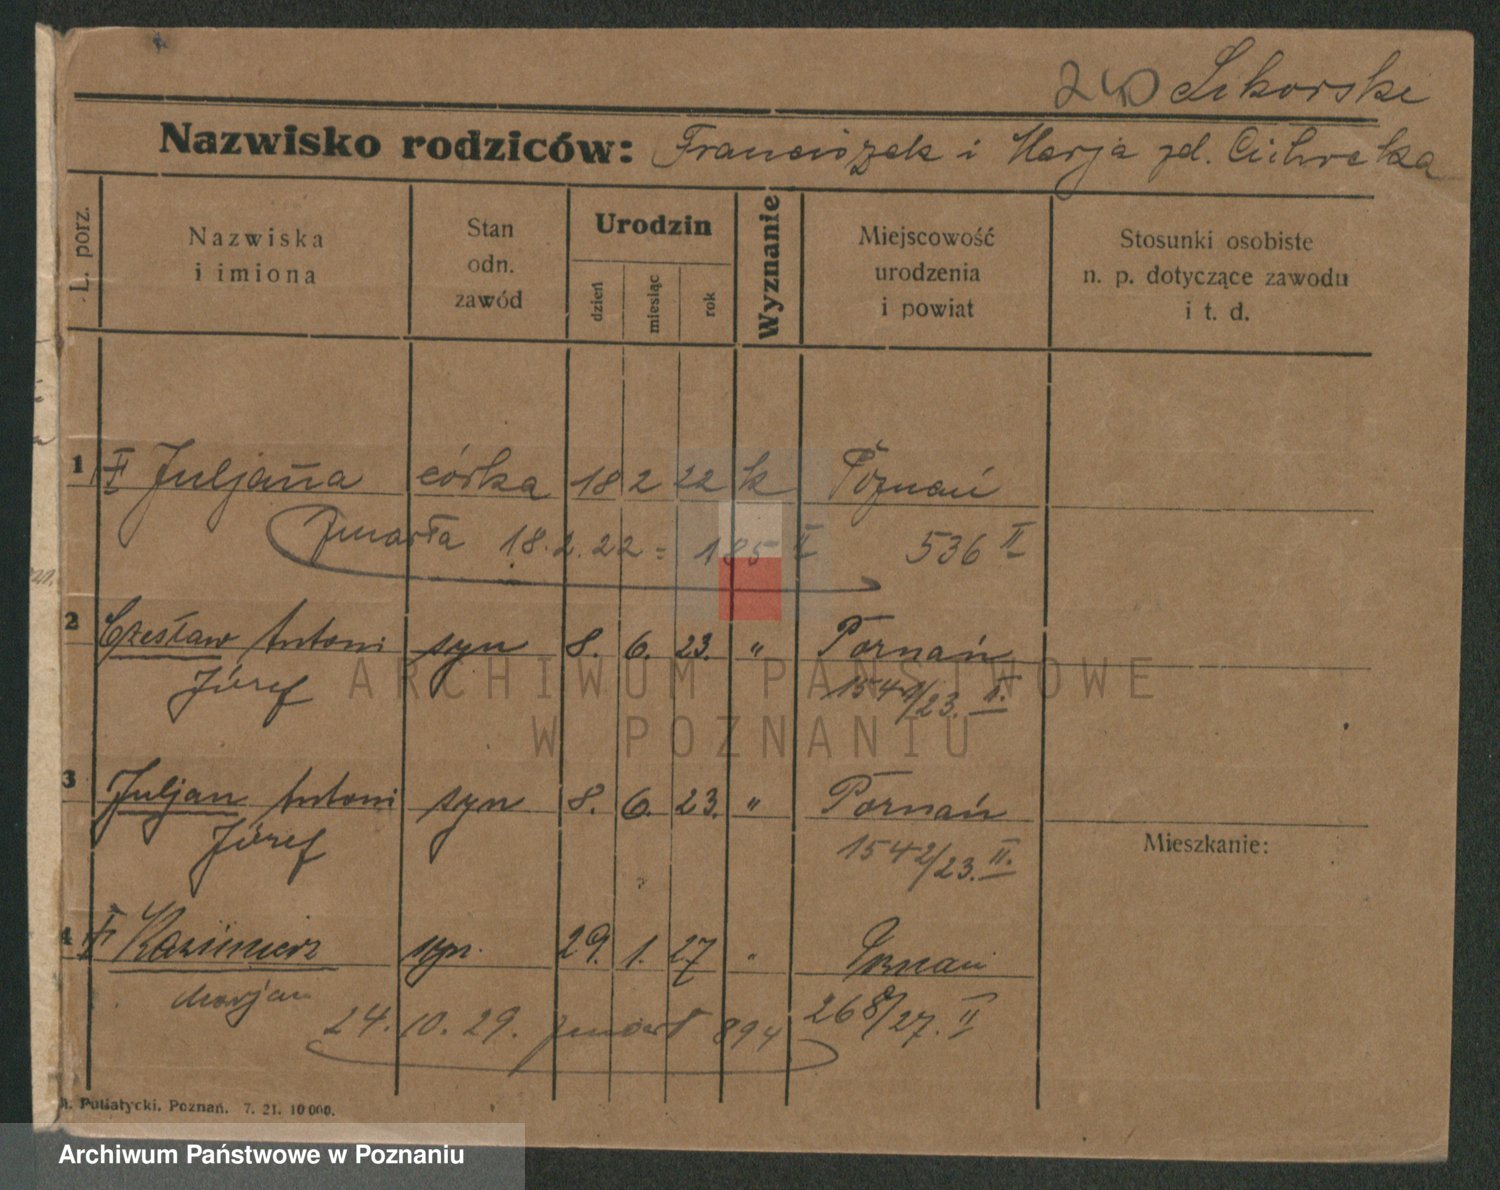 Sikorski
Nazwisko rodziców: Franciszek i Marja zd. Cichocka
L. porz.
Nazwiska
i imiona
Stan
odn.
zawód
Urodzin
dzień
miesiąc
rok
Wyznanie
Miejscowość
urodzenia
i powiat
Stosunki osobiste
n. p. dotyczące zawodu
i t. d.
1 Juljanna córka 18 2 22 k Poznań
zmarła 18.2.22 = 185 II 536 II
2 Czesław Antoni syn 8. 6. 23. " Poznań
Józef 1541/23. II.
3 Juljan Antoni syn 8. 6. 23. " Poznań
Józef 1542/23. II.
Mieszkanie:
4 Kazimierz syn. 29. 1. 27 " Poznań
Marjan 268/27. II
24. 10. 29. zmarł 894
Putiatycki, Poznań. 7. 21. 10 000.
ARCHIWUM PAŃSTWOWE
W POZNANIU
Archiwum Państwowe w Poznaniu